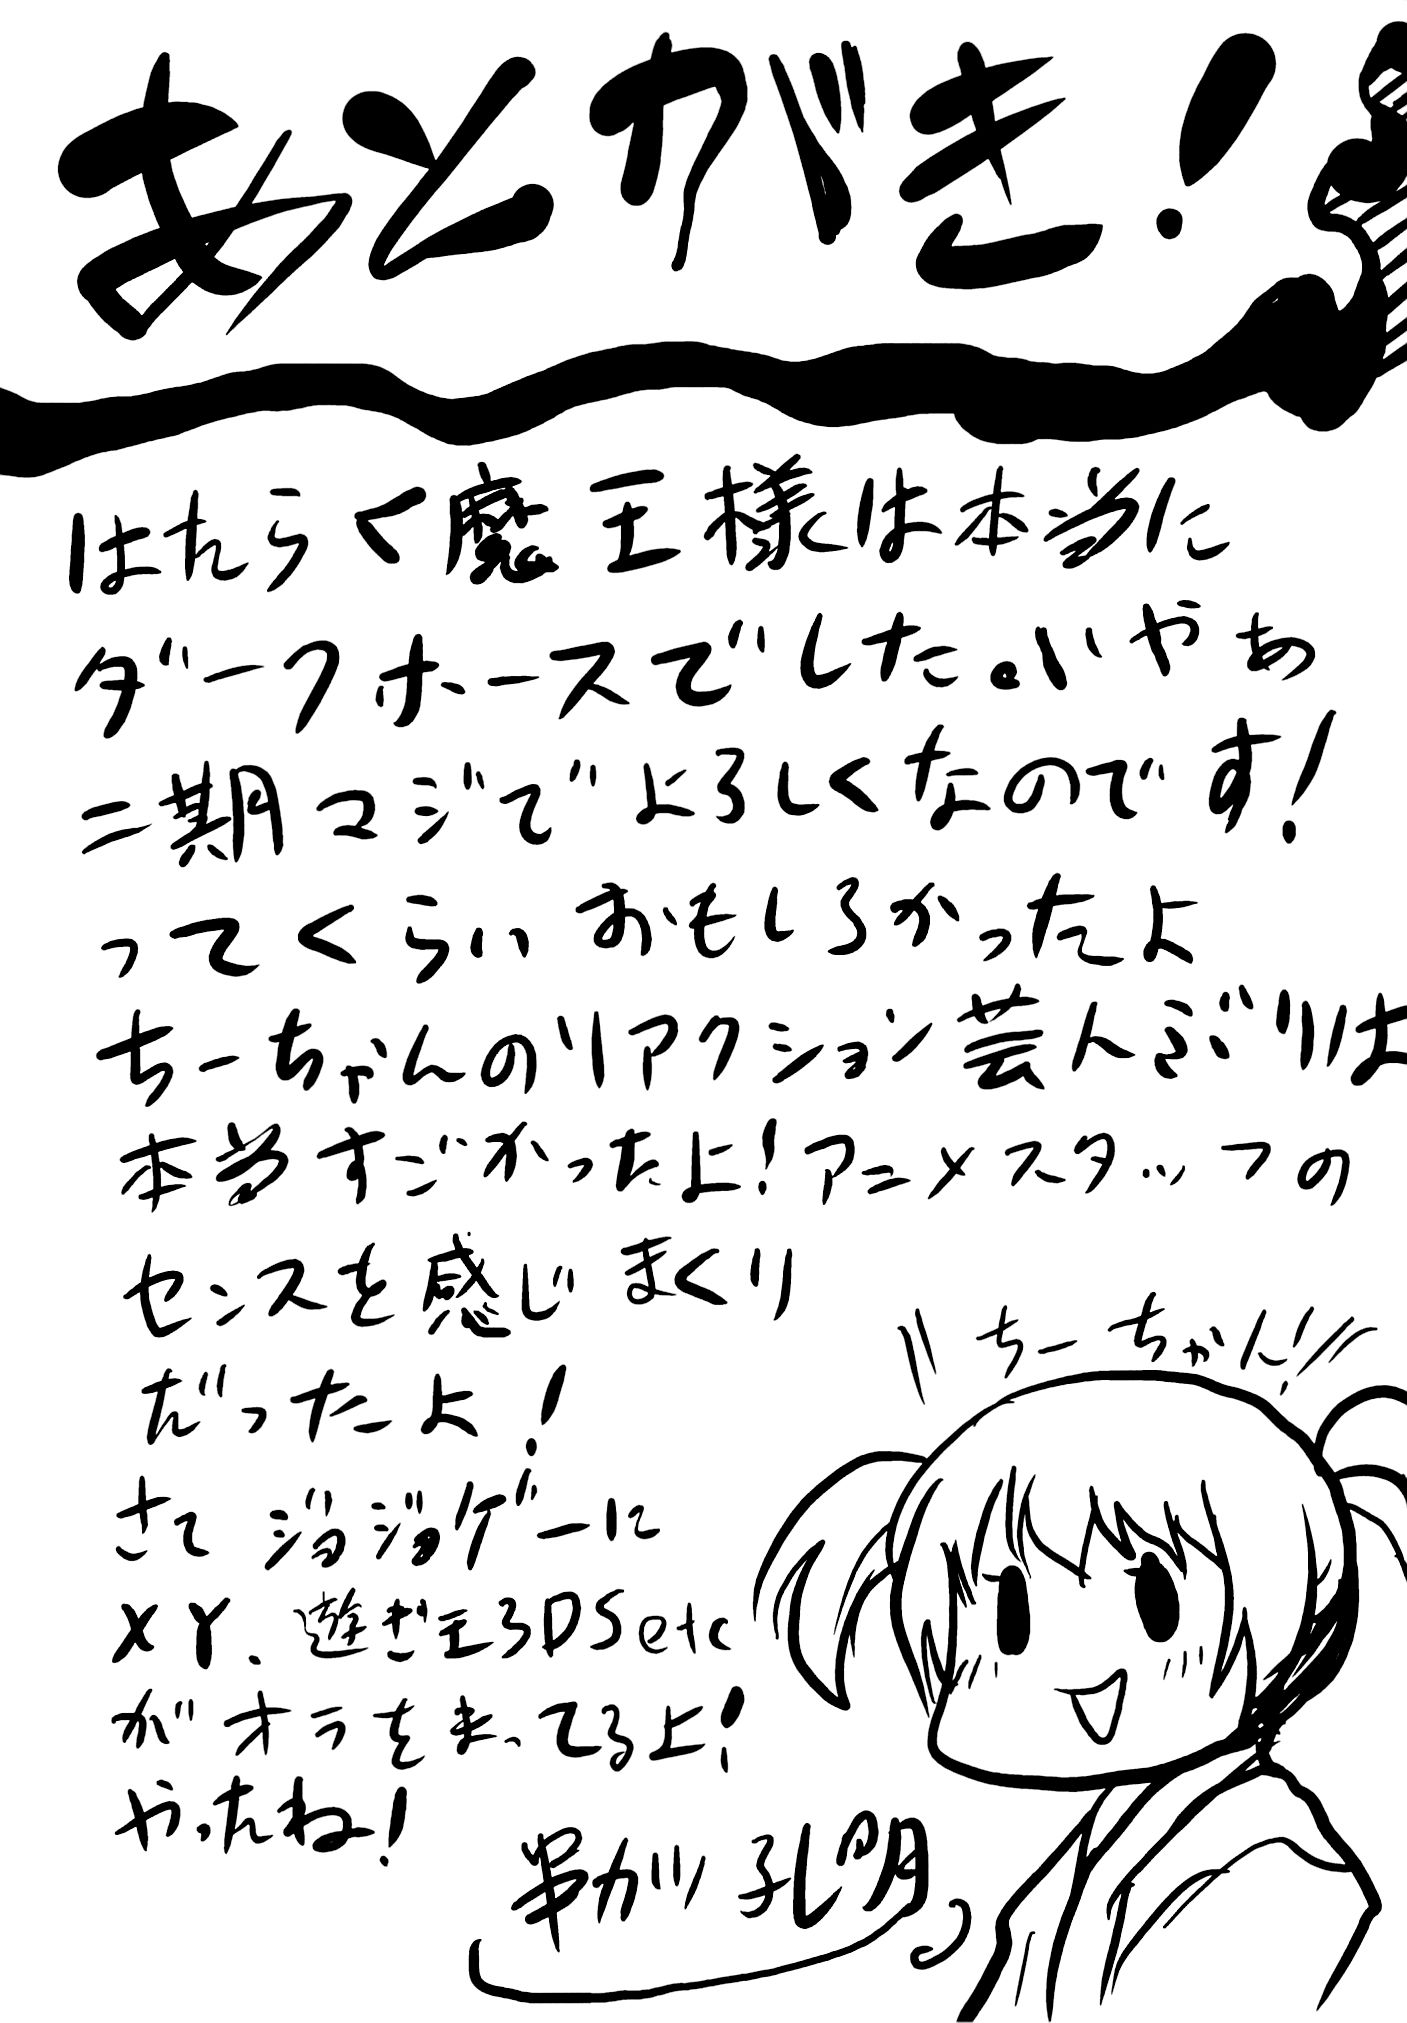 あとがき!
はたらく魔王様は本当に
ダークホースでした。いやぁ
二期マジでよろしくなのです!
ってくらいおもしろかったよ
ちーちゃんのリアクション芸人ぶりは
本当すごかったよ!アニメスタッフの
センスを感じまくり
だったよ!
ちーちゃん!
さてジョジョゲーに
XY、遊ぎ王3DSetc
がオラをまってるよ!
やったね!
串カツ孔明